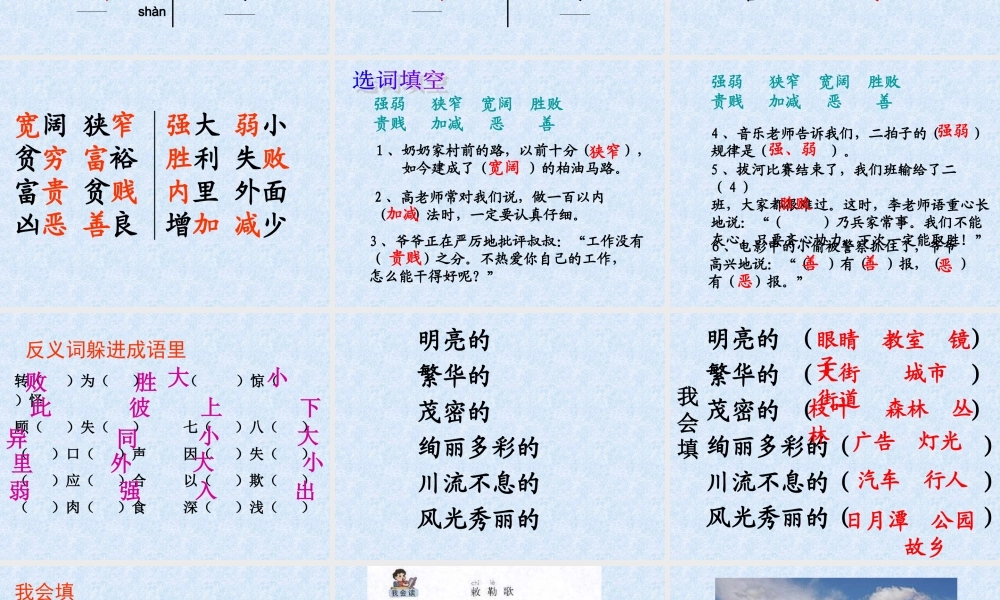 shàn
宽阔 狭窄 强大 弱小
贫穷 富裕 胜利 失败
富贵 贫贱 内里 外面
凶恶 善良 增加 减少
选词填空
强弱 狭窄 宽阔 胜败
贵贱 加减 恶 善
1、奶奶家村前的路，以前十分（狭窄），
如今建成了（宽阔）的柏油马路。
2、高老师常对我们说，做一百以内
（加减）法时，一定要认真仔细。
3、爷爷正在严厉地批评叔叔：“工作没有
（贵贱）之分。不热爱你自己的工作，
怎么能干得好呢？”
强弱 狭窄 宽阔 胜败
贵贱 加减 恶 善
4、音乐老师告诉我们，二拍子的（强弱）
规律是（强、弱）。
5、拔河比赛结束了，我们班输给了二
（4）
班，大家都很难过。这时，李老师语重心长
地说：“（ ）乃兵家常事。我们不能
灰心，只要齐心协力，下次一定能取胜！”
6、电影中的小偷被警察抓住了，爷爷
高兴地说：“（善）有（善）报，（恶）
有（恶）报。”
反义词躲进成语里
转（败）为（胜） （大）惊（小
）怪
顾（此）失（彼） 七（上）八（下）
（异）口（同）声 因（小）失（大）
（里）应（外）合 以（大）欺（小）
（弱）肉（强）食 深（入）浅（出）
明亮的
繁华的
茂密的
绚丽多彩的
川流不息的
风光秀丽的
我会填
明亮的 （眼睛 教室 镜子）
繁华的 （大街 城市 街道）
茂密的 （枝叶 森林 丛林）
绚丽多彩的（广告 灯光 ）
川流不息的（ 汽车 行人 ）
风光秀丽的（日月潭 公园 ）
故乡
我会填
我会读
chì lè
敕勒歌